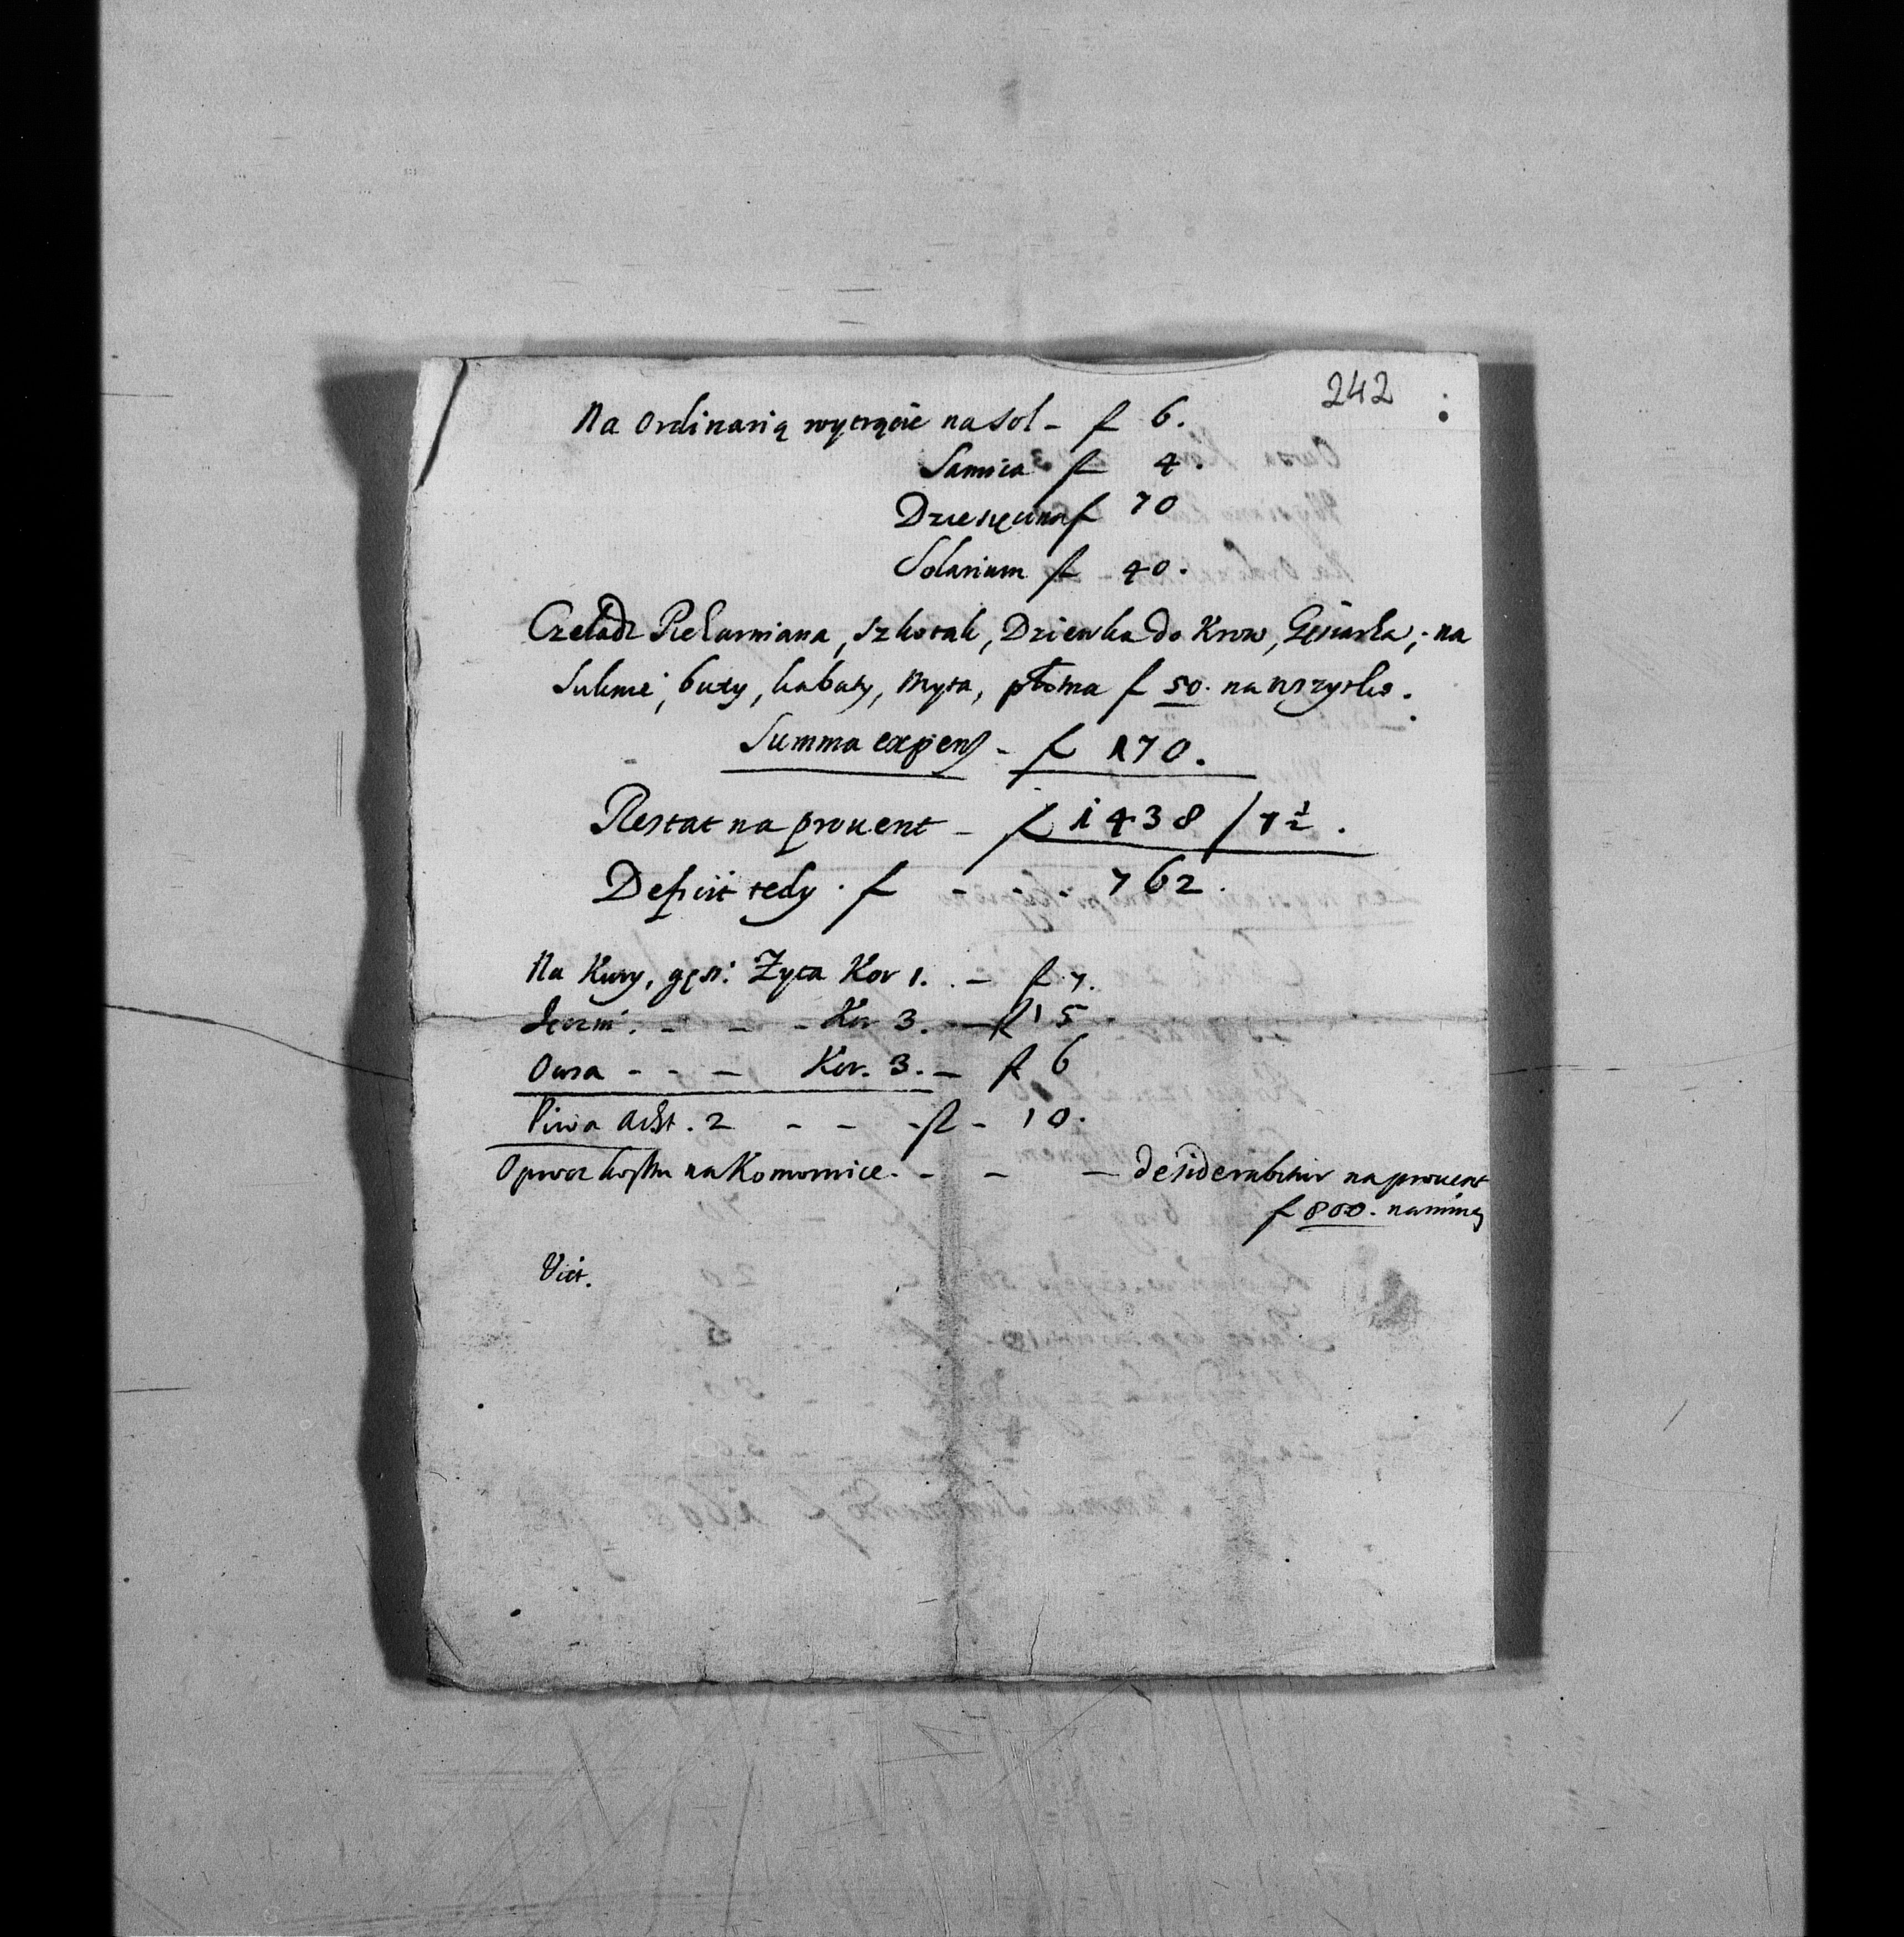 242
Na Ordinarią wyciągcie na sol - f 6.
Samica f 4.
Dziesięcina f 70
Solarium f 40.
Czeladz Piekarniana, Szkotak, Dziewka do Krow, Gęsiarka, na
Suknie, buty, kabaty, myta, płotna f 50. na wszystko.
Summa expens - f 170.
Restat na prouent - f 1438 / 7½.
Deficit tedy. f - - - 762.
Na Kury, gęsi: Zyta Kor 1. . - f 7.
Jeczm. - - - Kor 3. - f 15.
Owsa - - - Kor. 3. - f 6
Piwa Acht. 2 - - - f - 10.
Oprocz kosztu na Komornice. - - - desiderabitur na prouent
f 800.
Vict.